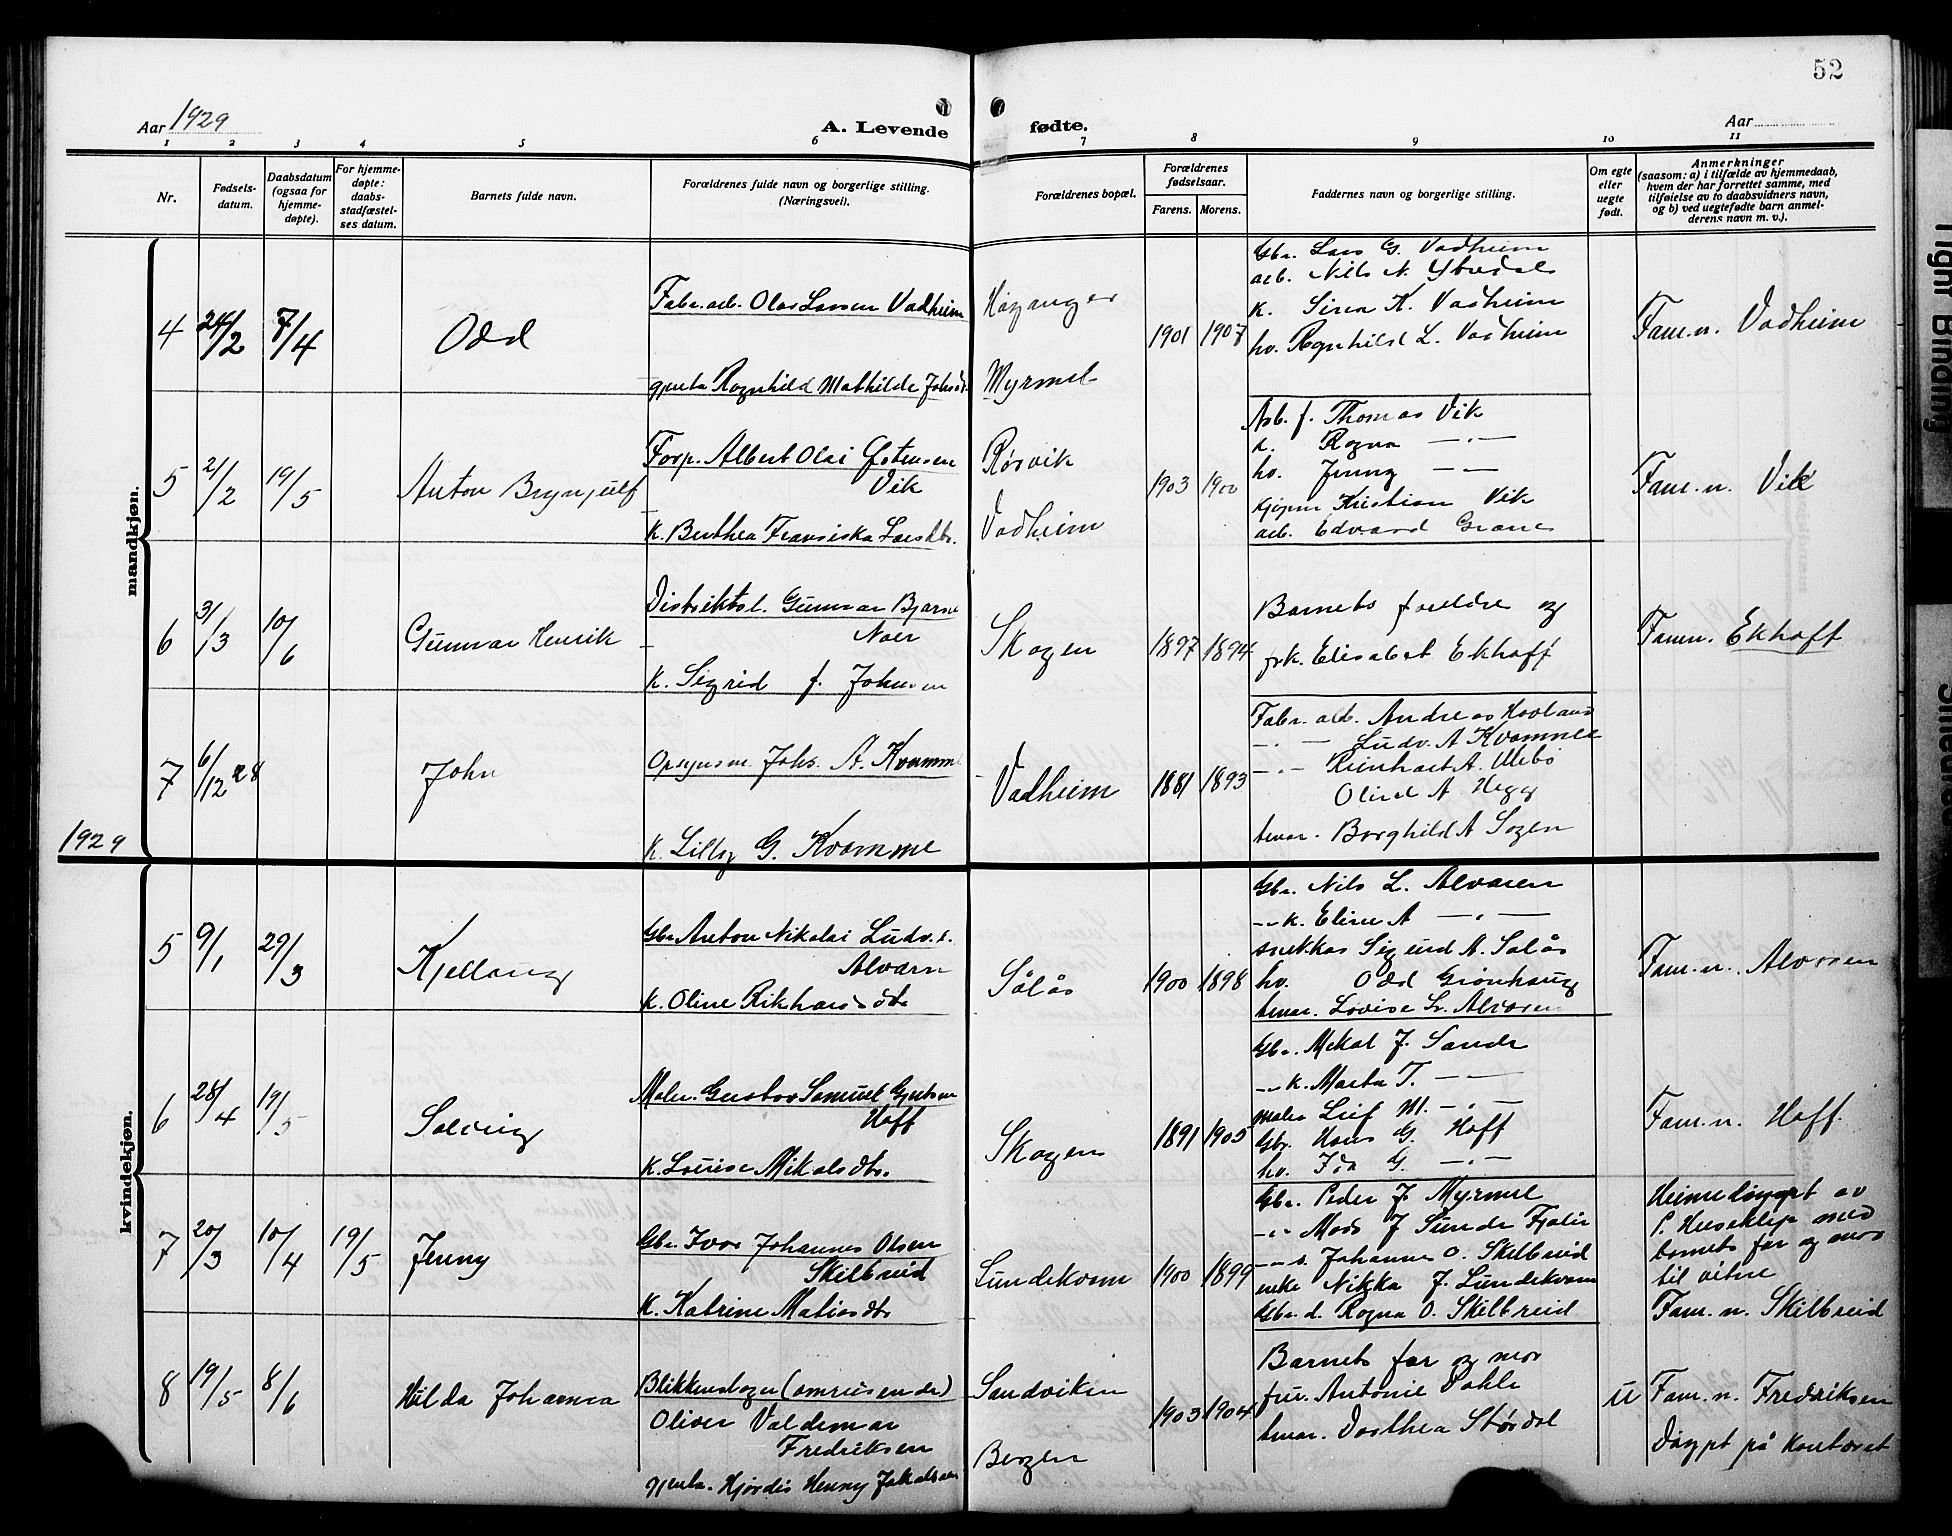 52
Aar 1929
A. Levende fødte.
Aar
1 2 3 4 5 6 7 8 9 10 11
Nr.
Fødsels-
datum.
Daabsdatum
(ogsaa for
hjemme-
døpte).
For hjemme-
døpte:
daabs-
stadfæstel-
ses datum.
Barnets fulde navn.
Forældrenes fulde navn og borgerlige stilling.
(Næringsvei).
Forældrenes bopæl.
Forældrenes
fødselsaar.
Farens. Morens.
Faddernes navn og borgerlige stilling.
Om egte
eller
uegte
født.
Anmerkninger
(saasom: a) i tilfælde av hjemmedaab,
hvem der har forrettet samme, med
tilføielse av to daabsvidners navn,
og b) ved uegtefødte barn anmel-
derens navn m. v.).
mandkjøn.
4 24/2 7/4 Odd
Fabr. arb. Olas Larsen Vadheim
gjenta Ragnhild Mathilde Johsd.
Høyanger
Myrmel
1901 1907
Gbr. Lars G. Vadheim
arb. Nils N. Ytredal
k. Siren K. Vadheim
hv. Ragnhild L. Vadheim
Fam.n. Vadheim
5 2/2 19/5 Anton Brynjulf
Forp. Albert Olai Østensen
Vik
k. Berthea Fransiska Larsdtr.
Rørvik
Vadheim
1903 1900
Arb. f. Thomas Vik
k. Ragna — " —
hv. Jenny — " —
Kristian Vik
arb. Edvard Grane
Fam.n. Vik
6 3/3 10/6 Gunnar Henrik
Distriktsl. Gunnar Bjarne
Noer
k. Sigrid f. Johnsen
Skogen
1897 1894
Barnets foreldre og
frk. Elisabet Ekhoff
Famn. Ekhoff
7 6/12 28 John
Opsynsm. Johs. A. Kvamme
k. Lilly G. Kvamme
Vadheim
1881 1893
Fabr. arb. Andreas Hovland
— " — Ludv. A Kvamme
— " — Reinhart A.
Olind A
tenar. Borghild A Sogen
1929
kvindekjøn.
5 9/1 29/3 Kjellaug
Gbr. Anton Nikolai Ludv. s.
Alværn
k. Oline Rikhardsdtr.
Sålås
1900 1898
Gbr. Nils L. Alvaren
— " k. Eline A — " —
snekkar Sigurd A. Salås
hv. Odd Grønhaug
tenar. Lovise Alvaren
Fam.n. Alvaren
6 28/4 19/5 Solveig
Maler. Gustav Samuel Gjertsen
Hoff
k. Louise Mikalsdtr.
Skogen
1891 1905
Gbr. Mikal J. Sande
— " k. Marta T. — " —
maler Leif M. — " —
Gbr. Hans G. Hoff
hv. Ida G. — " —
Fam.n. Hoff.
7 20/3 10/4 19/5 Jenny
Gbr. Ivar Johannes Olsen
Skilbreid
k. Katrine Matiasdtr.
Lundekvam
1900 1899
Gbr. Peder J. Myrmel
— " — Mads J Sunde Fjaler
— " s. Johannes O. Skilbreid
enke Nikka J. Lundekvam
Gbr. d. Ragna O. Skilbreid
Heimedøypt av
P. Huseklep med
barnets far og mor
til vitne
Fam. n. Skilbreid
8 19/5 8/6 Hilda Johanna
Blikkenslager (omreisende)
Oliver Valdemar
Fredriksen
gjenta. Hjørdis Henny Jakobsen
Sandviken
Bergen
1903 1904
Barnets far og mor
fru. Antonie Dahle
tenar. Dorthea Størdal
u
Fam.n. Fredriksen
Døypt på kontoret
Tight Binding